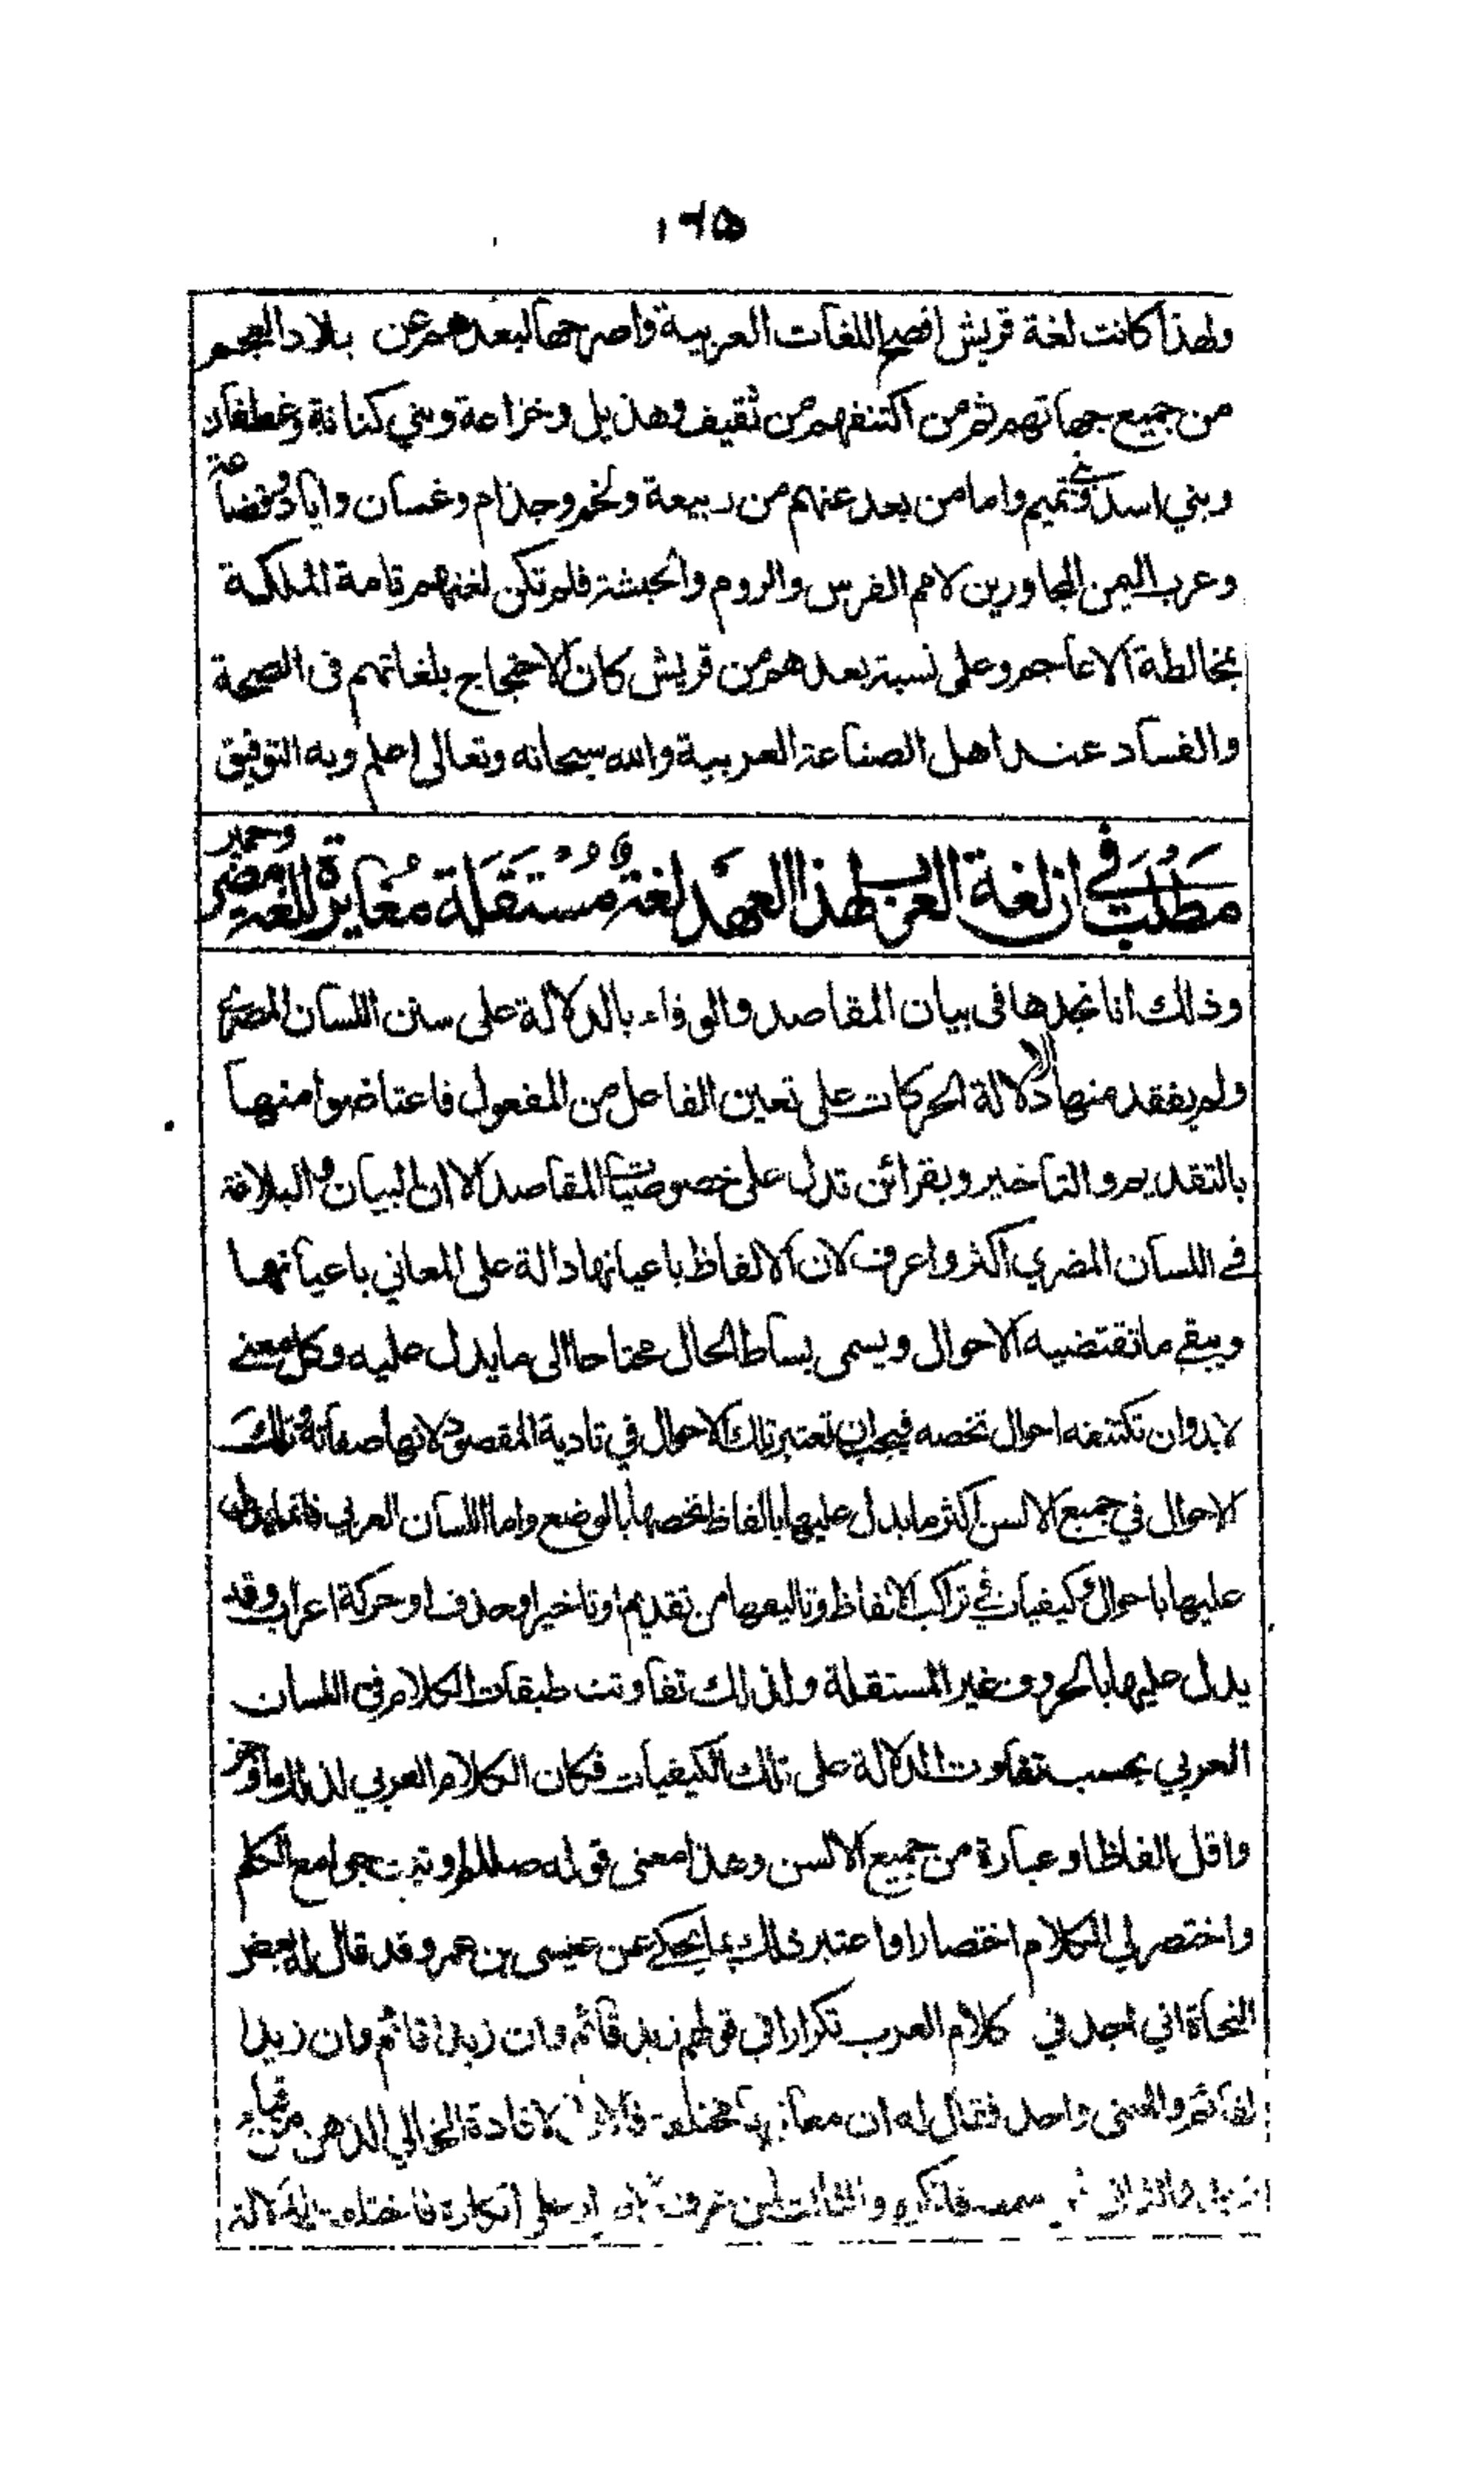 ١٦٥
ولهذا كانت لغة قريش افصح اللغات العربية واصرحها لبعدهم عن بلاد العجم
من جميع جهاتهم ثم من اكتنفهم من ثقيف وهذيل وخزاعة وبني كنانة وغطفان
وبني اسد وبني تميم واما من بعد عنهم من ربيعة ولخم وجذام وغسان واياد وقضاعة
وعرب اليمن المجاورين لامم الفرس والروم والحبشة فلم تكن لغتهم تامة الملكة
بمخالطة الاعاجم وعلى نسبة بعدهم من قريش كان الاحتجاج بلغاتهم فى الصحة
والفساد عند اهل الصناعة العربية والله سبحانه وتعالى اعلم وبه التوفيق
مَطْلَبٌ في ان لغة العرب لهذا العهد لغةٌ مُستَقلَة مُغايرة للغة مضر وحمير
وذلك انا نجدها فى بيان المقاصد والوفاء بالدلالة على سنن اللسان المضري
ولم يفقد منها الا دلالة الحركات على تعين الفاعل من المفعول فاعتاضوا منها
بالتقديم والتاخير وبقرائن تدل على خصوصيات المقاصد الا ان البيان والبلاغة
في اللسان المضري اكثر واعرف لان الالفاظ باعيانها دالة على المعاني باعيانها
ويبقى ما تقتضيه الاحوال ويسمى بساط الحال محتاحا الى ما يدل عليه وكل معنى
لابد وان تكتنفه احوال تخصه فيجب ان تعتبر تلك الاحوال في تادية المقصود لانها صفاته وتلك
الاحوال في جميع الالسن اكثر ما يدل عليها بالفاظ تخصها بالوضع واما اللسان العربي فانما يدل
عليها باحوال وكيفيات في تراكيب الالفاظ وتاليفها من تقديم او تاخير او حذف او حركة اعراب وقد
يدل عليها بالحروف غير المستقلة ولذلك تفاوتت طبقات الكلام في اللسان
العربي بحسب تفاوت الدلالة على تلك الكيفيات فكان الكلام العربي لذلك اوجز
واقل الفاظا وعبارة من جميع الالسن وهذا معنى قوله صلعم اوتيت جوامع الكلم
واختصر لي الكلام اختصارا واعتبر ذلك بما يحكى عن عيسى بن عمر وقد قال له بعض
النحاة اني اجد في كلام العرب تكرارا في قولهم زيد قائم وان زيدا قائم وان زيدا
لقائم والمعنى واحد فقال له ان معانيها مختلفة فالاول لافادة الخالي الذهن من قيام
زيد والثاني لمن سمعه فانكره والثالث لمن عرف بالاصرار على انكاره فاختلفت الدلالة